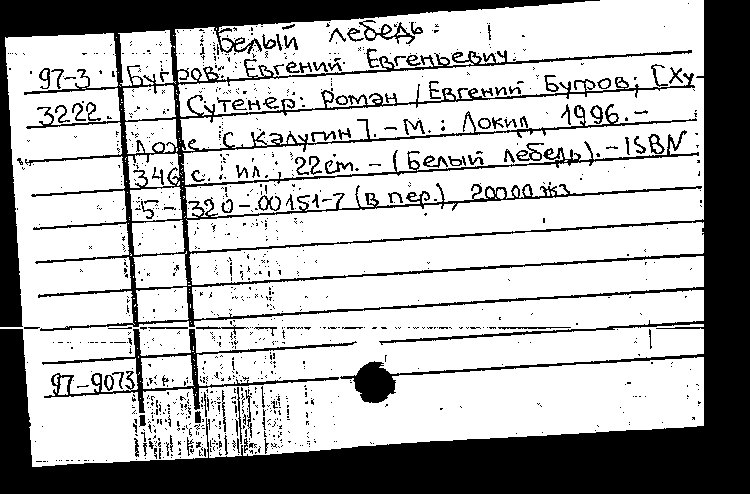 Белый лебедь.
97-3 Бугров, Евгений Евгеньевич.
3222 Сутенер: Роман / Евгений Бугров; [Ху-
дож. С. Калугин]. - М.: Локид, 1996. -
346 с.: ил.; 22 см. - (Белый лебедь). - ISBN
5-320-00151-7 (в пер.), 20000 экз.
97-9073